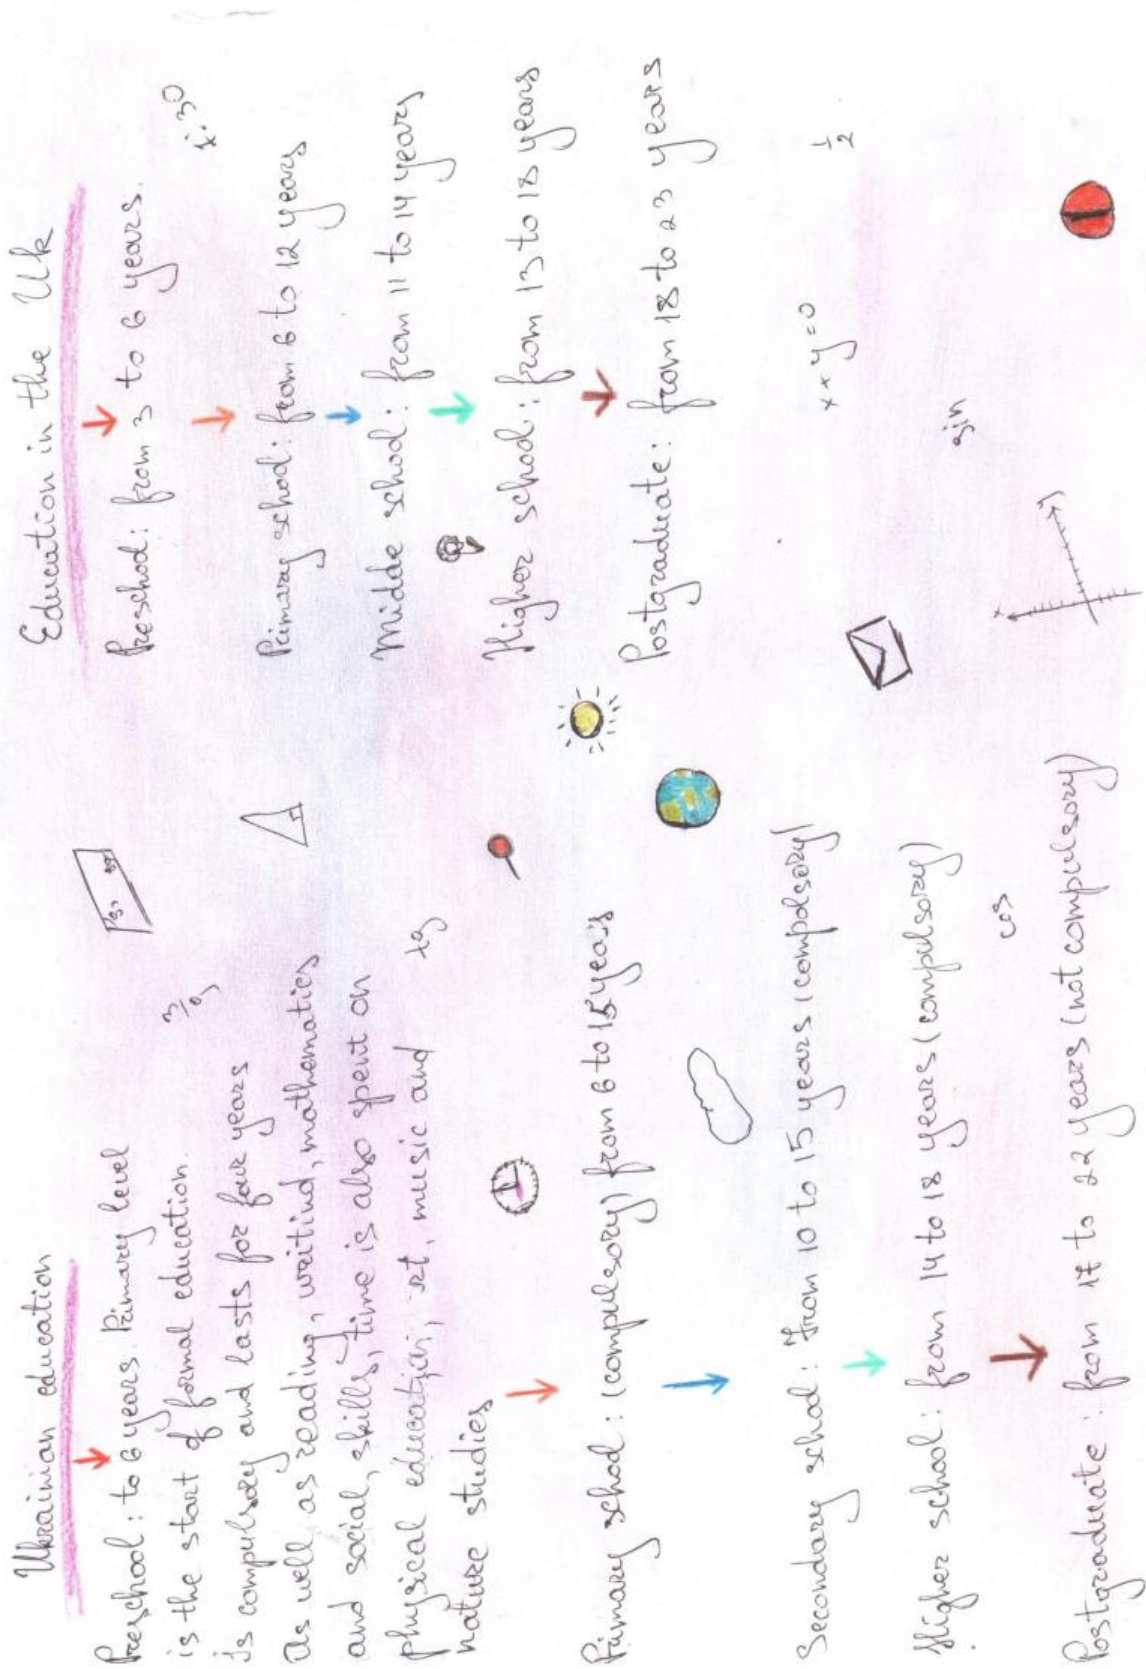 Ukrainian education
Preschool: to 6 years. Primary level
is the start of formal education.
Is compulsory and lasts for four years
As well, as reading, writind, mathematics
and social, skills, time is also spent on
physical education, art, music and
nature studies
Primary school: (compulsory) from 6 to 15 years
Secondary school: From 10 to 15 years (compolsory)
Higher school: from 14 to 18 years (compulsory)
Postgraduate: from 17 to 22 years (not compulsory)
tg
cos
Education in the Uk
Preschool: from 3 to 6 years.
Primary school: from 6 to 12 years
Middle school: from 11 to 14 years
Higher school: from 13 to 18 years
Postgraduate: from 18 to 23 years
x+y=0
1/2
sin